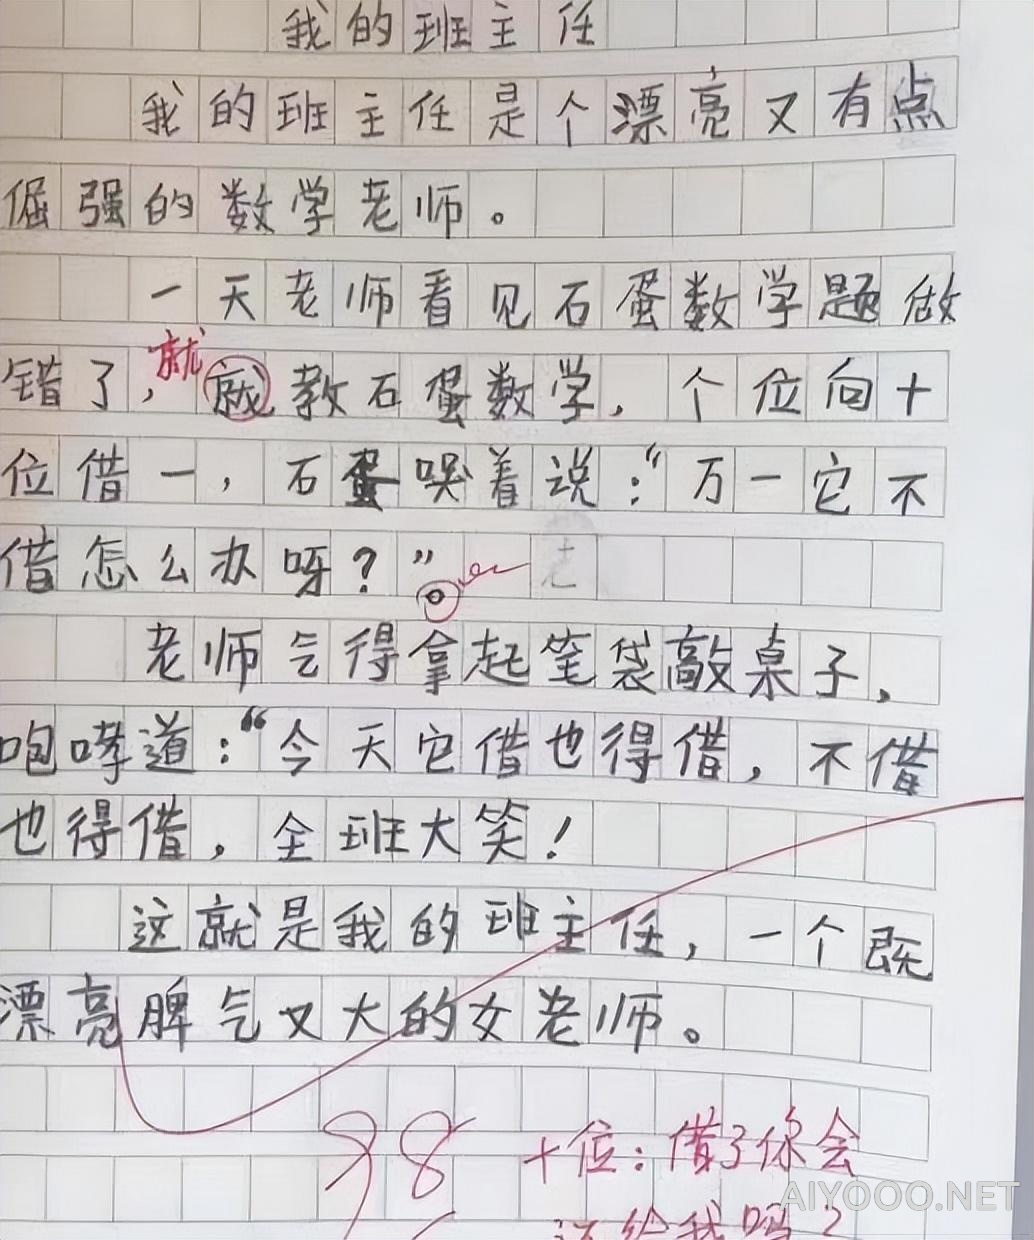 我的班主任
我的班主任是个漂亮又有点
倔强的数学老师。
一天老师看见石蛋数学题做
就
错了,就教石蛋数学,个位向十
位借一,石蛋哭着说:“万一它不
借怎么办呀?”
老
老师气得拿起笔袋敲桌子,
咆哮道:“今天它借也得借,不借
也得借,全班大笑!
这就是我的班主任,一个既
漂亮脾气又大的女老师。
98
十位:借了你会
还给我吗?
AIYOOO.NET